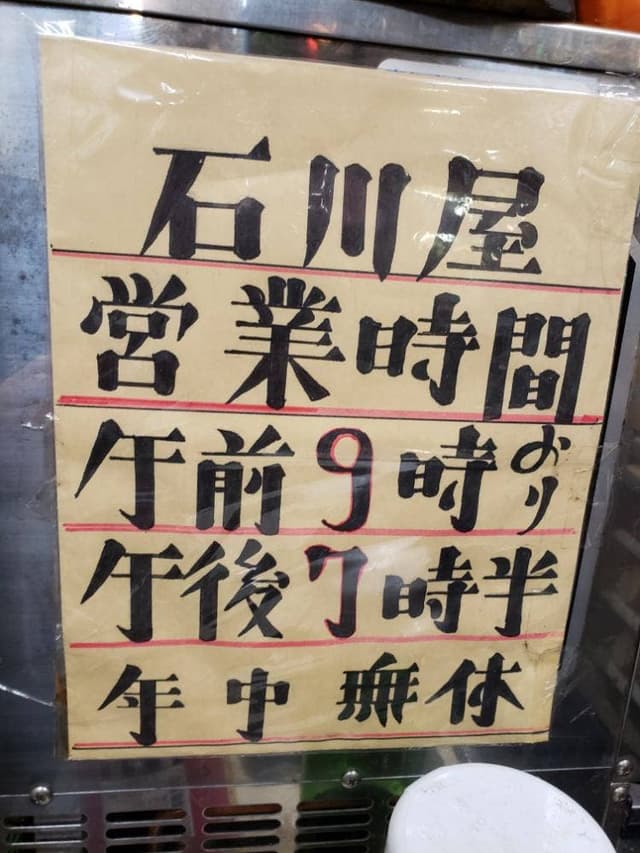 石川屋
営業時間
午前9時より
午後7時半
年中無休